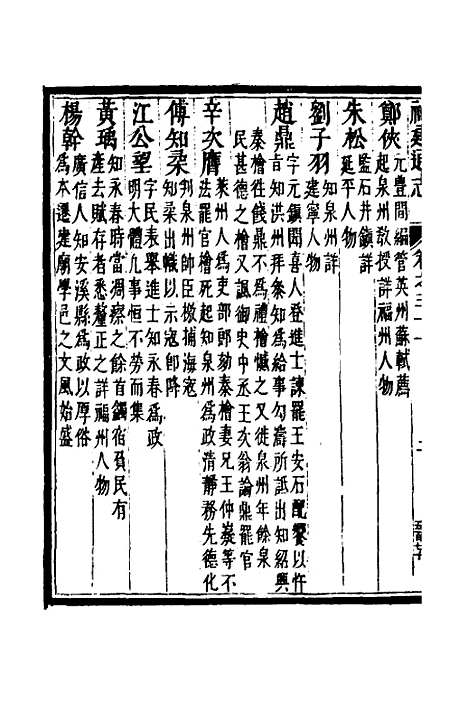 福建通志 卷之三十一
鄭俠 元豐間編管英州蘇軾薦
起泉州教授詳福州人物
朱松 監石井鎮詳
延平人物
劉子羽 知泉州詳
建寧人物
趙鼎 字元鎮聞喜人登進士諫罷王安石配饗以忤
旨知洪州拜參知為給事勾濤所詆出知紹興
秦檜徃餞鼎不為禮檜憾之又徙泉州年餘泉
民甚德之檜又諷御史中丞王次翁論鼎罷官
辛次膺 萊州人為吏部郎劾秦檜妻兄王仲嶷等不
法罷官檜死起知泉州為政清靜務先德化
傅知柔 判泉州帥臣檄捕海寇
知柔出幟以示寇卽降
江公望 字民表舉進士知永春為政
明大體凡事恒不勞而集
黃瑀 知永春時當凋瘵之餘首蠲宿負民有
產去賦存者悉釐正之詳福州人物
楊幹 廣信人知安溪縣為政以厚俗
為本遷建廟學邑之文風始盛